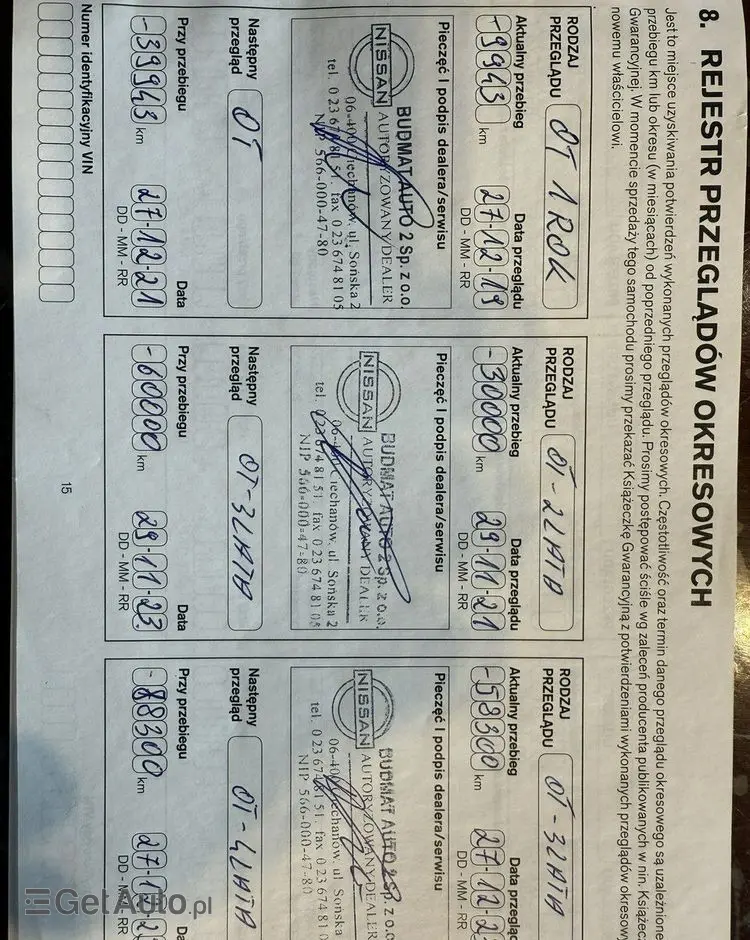 8. REJESTR PRZEGLĄDÓW OKRESOWYCH
Jest to miejsce uzyskiwania potwierdzeń wykonanych przeglądów okresowych. Częstotliwość oraz termin danego przeglądu okresowego są uzależnione
przebiegu km lub okresu (w miesiącach) od poprzedniego przeglądu. Prosimy postępować ściśle wg zaleceń producenta publikowanych w nin. Książec
Gwarancyjnej. W momencie sprzedaży tego samochodu prosimy przekazać Książeczkę Gwarancyjną z potwierdzeniami wykonanych przeglądów okresow
nowemu właścicielowi.
RODZAJ
PRZEGLĄDU OT 1 ROK
Aktualny przebieg Data przeglądu
-9943 km 27-12-19
DD - MM - RR
Pieczęć i podpis dealera/serwisu
BUDMAT AUTO 2 Sp. z o.o.
NISSAN AUTORYZOWANY DEALER
06-400 Ciechanów, ul. Sońska 2
tel. 0 23 674 81 51, fax 0 23 674 81 05
NIP 566-000-47-80
Następny
przegląd OT
Przy przebiegu Data
-39943 km 27-12-21
DD - MM - RR
RODZAJ
PRZEGLĄDU OT-2 LATA
Aktualny przebieg Data przeglądu
-30000 km 29-11-21
DD - MM - RR
Pieczęć i podpis dealera/serwisu
BUDMAT AUTO 2 Sp. z o.o.
NISSAN AUTORYZOWANY DEALER
06-400 Ciechanów, ul. Sońska 2
tel. 023 674 81 51 fax 0 23 674 81 05
NIP 566-000-47-80
Następny
przegląd OT-3 LATA
Przy przebiegu Data
-60000 km 29-11-23
DD - MM - RR
RODZAJ
PRZEGLĄDU OT-3 LATA
Aktualny przebieg Data przegląd
-58300 km 27-12-2
DD - MM - RR
Pieczęć i podpis dealera/serwisu
BUDMAT AUTO 2 Sp. z o.o.
NISSAN AUTORYZOWANY DEALER
06-400 Ciechanów, ul. Sońska
tel. 0 23 674 81 51, fax 0 23 674 81 0
NIP 566-000-47-80
Następny
przegląd OT-4 LATA
Przy przebiegu Da
-88300 km 27-12-2
DD - MM - RR
Numer identyfikacyjny VIN
15
GetAuto.pl